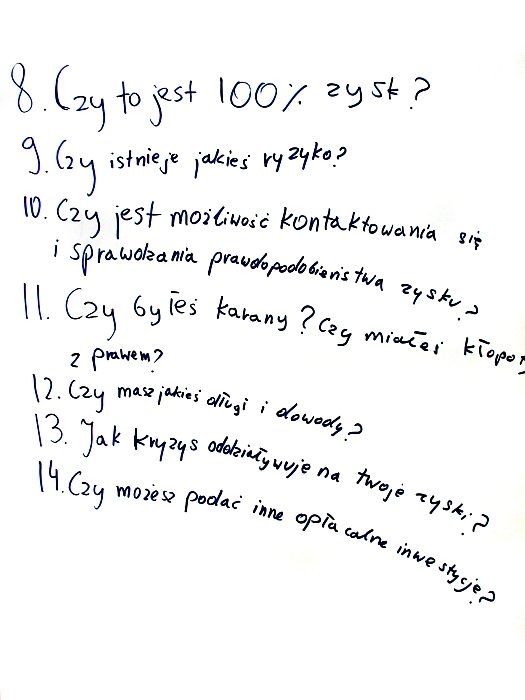 8. Czy to jest 100% zysk?
9. Czy istnieje jakieś ryzyko?
10. Czy jest możliwość kontaktowania się
i sprawdzania prawdopodobieństwa zysku?
11. Czy byłeś karany? Czy miałeś kłopoty
z prawem?
12. Czy masz jakieś długi i dowody?
13. Jak kryzys oddziaływuje na twoje zyski?
14. Czy możesz podać inne opłacalne inwestycje?